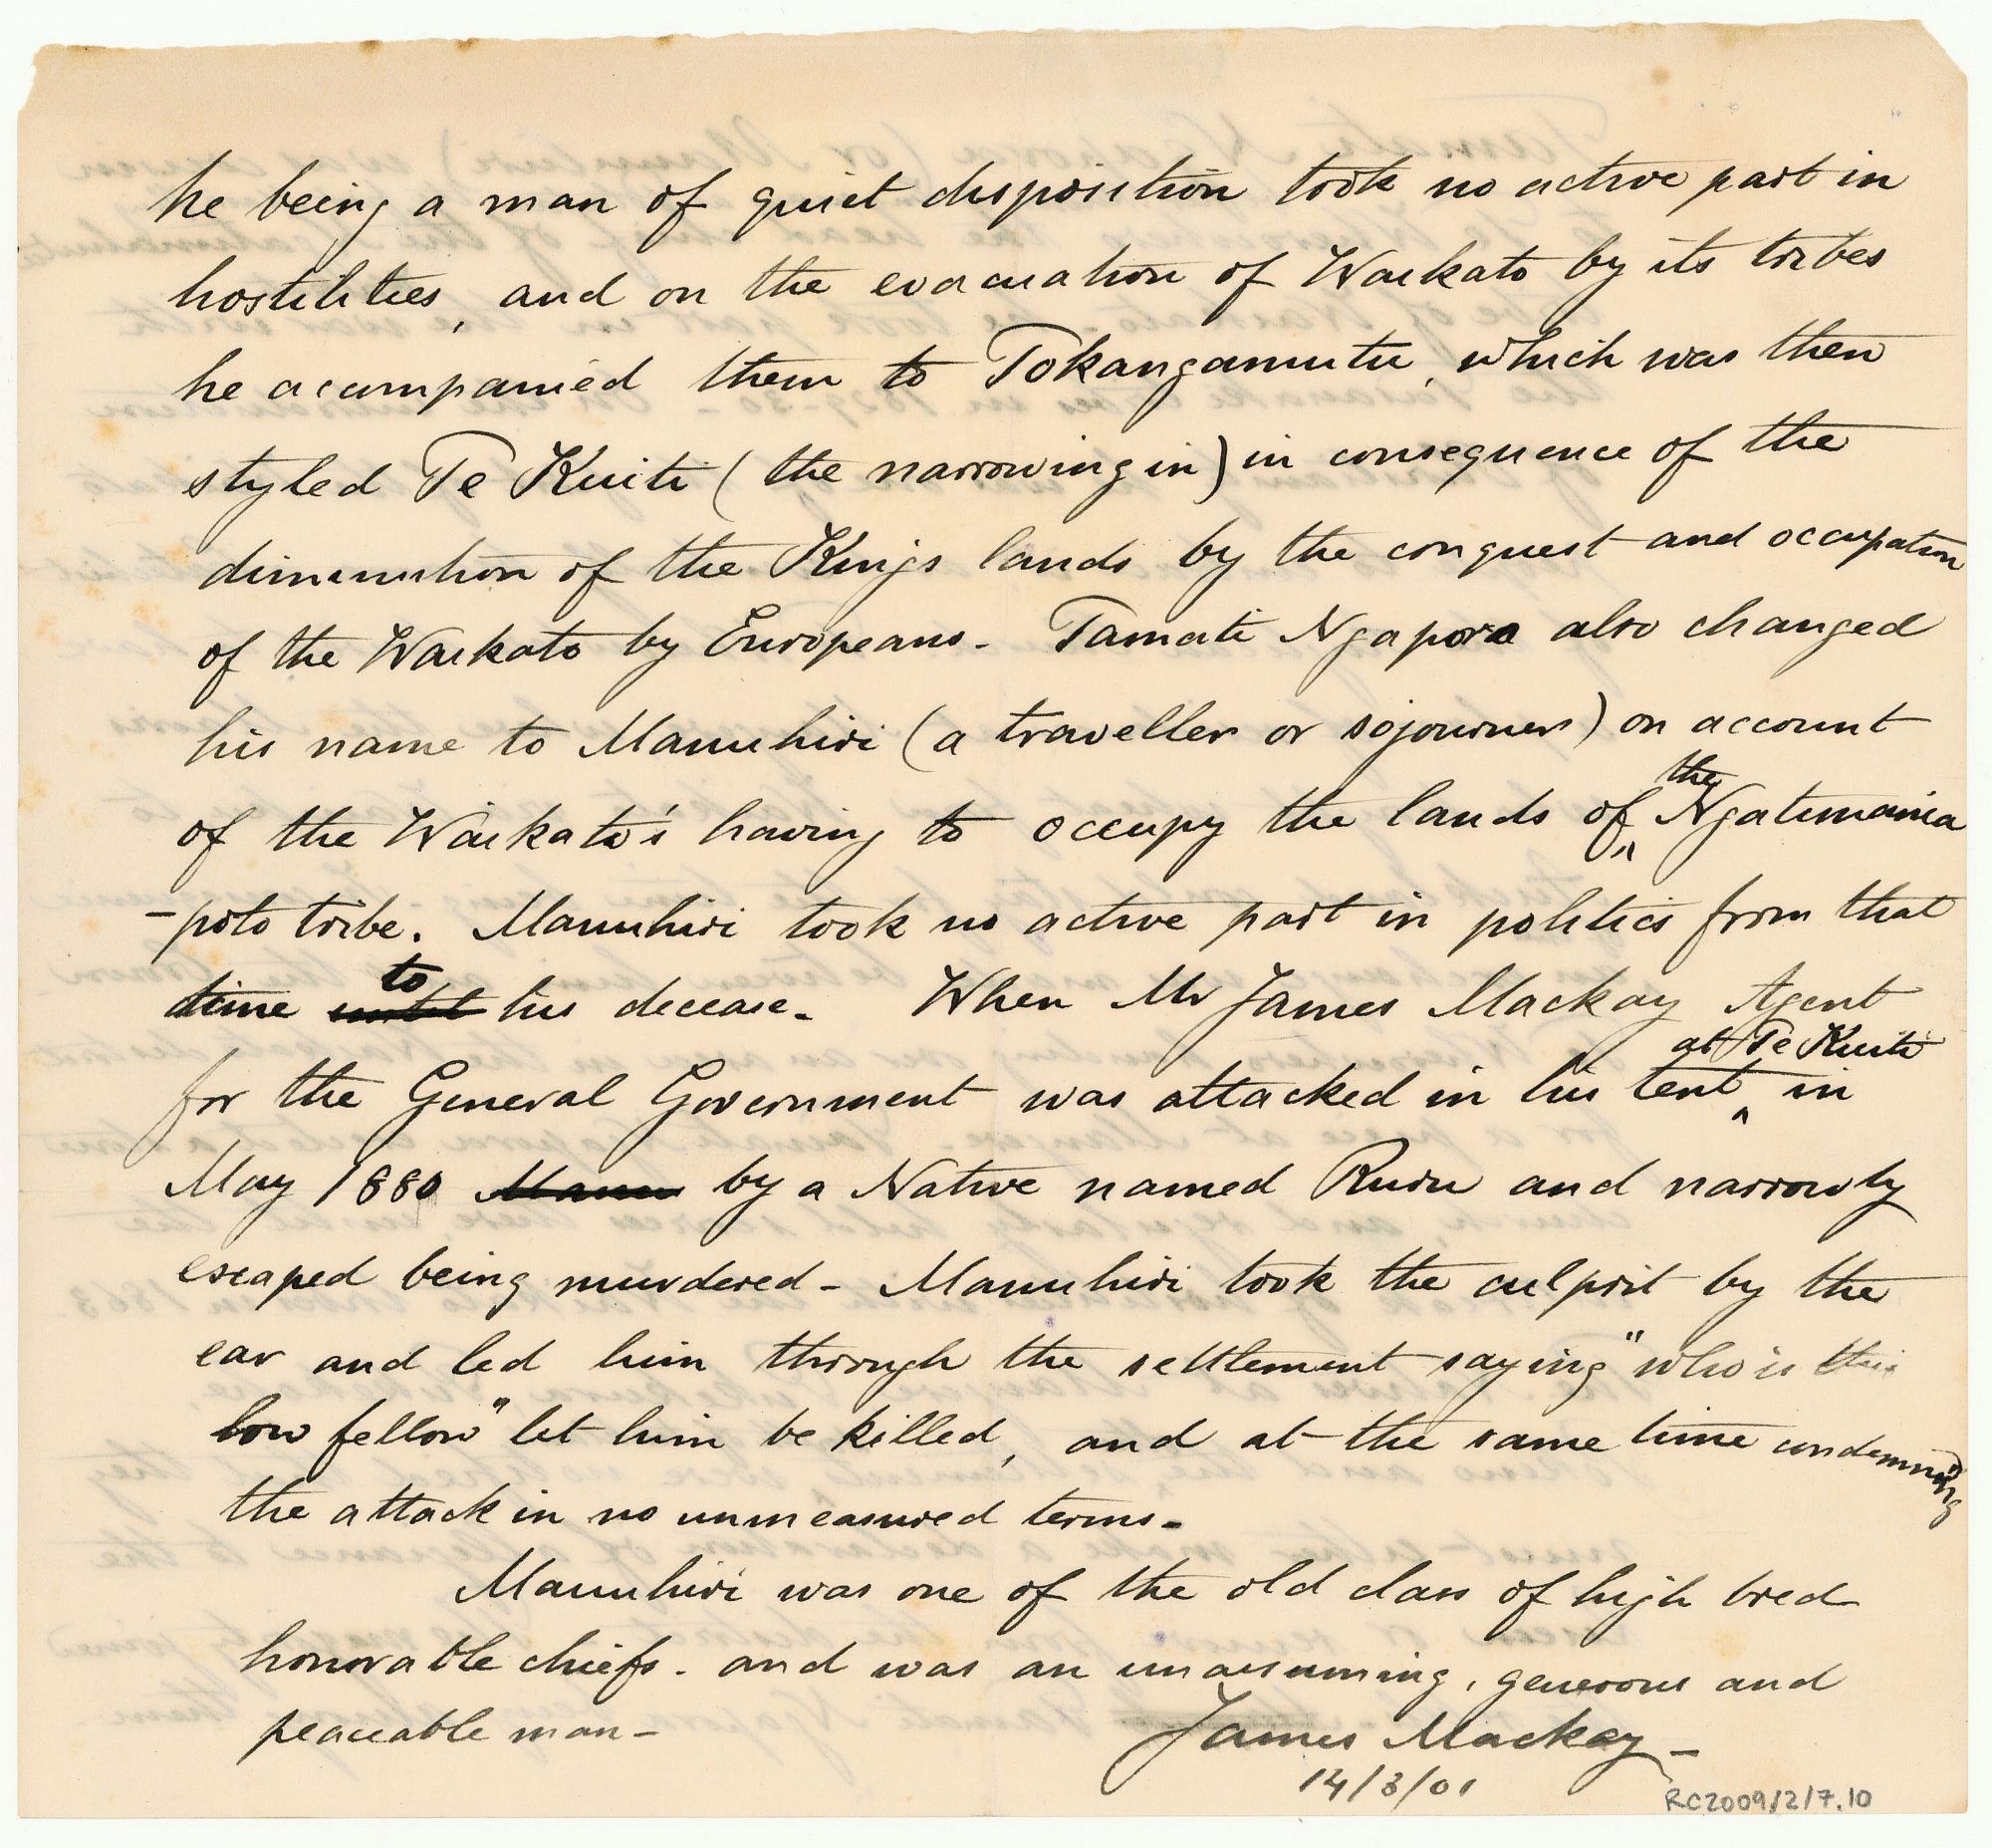 he being a man of quiet disposition took no active part in
hostilities, and on the evacuation of Waikato by its tribes
he acompanied them to Tokangamutu, which was then
styled Te Kuiti (the narrowing in) in consequence of the
diminution of the Kings lands by the conquest and occupation
of the Waikato by Europeans - Tamati Ngapora also changed
his name to Manuhiri (a traveller or sojourner) on account
the
of the Waikato's having to occupy the lands of Ngatimania
-poto tribe. Manuhiri took no active part in politics from that
to
time until his decease - When Mr James Mackay Agent
at Te Kuiti
for the General Government was attacked in his tent in
May 1880 Manu by a Native named Ruru and narrowly
escaped being murdered - Manuhiri took the culprit by the
ear and led him through the settlement saying "who is this
low fellow" let him be killed, and at the same time condemning
the attack in no unmeasured terms -
Manuhiri was one of the old class of high bred
honorable chiefs - and was an unassuming, generous and
peaceable man -
James Mackay -
14/3/01
RC2009/2/7.10